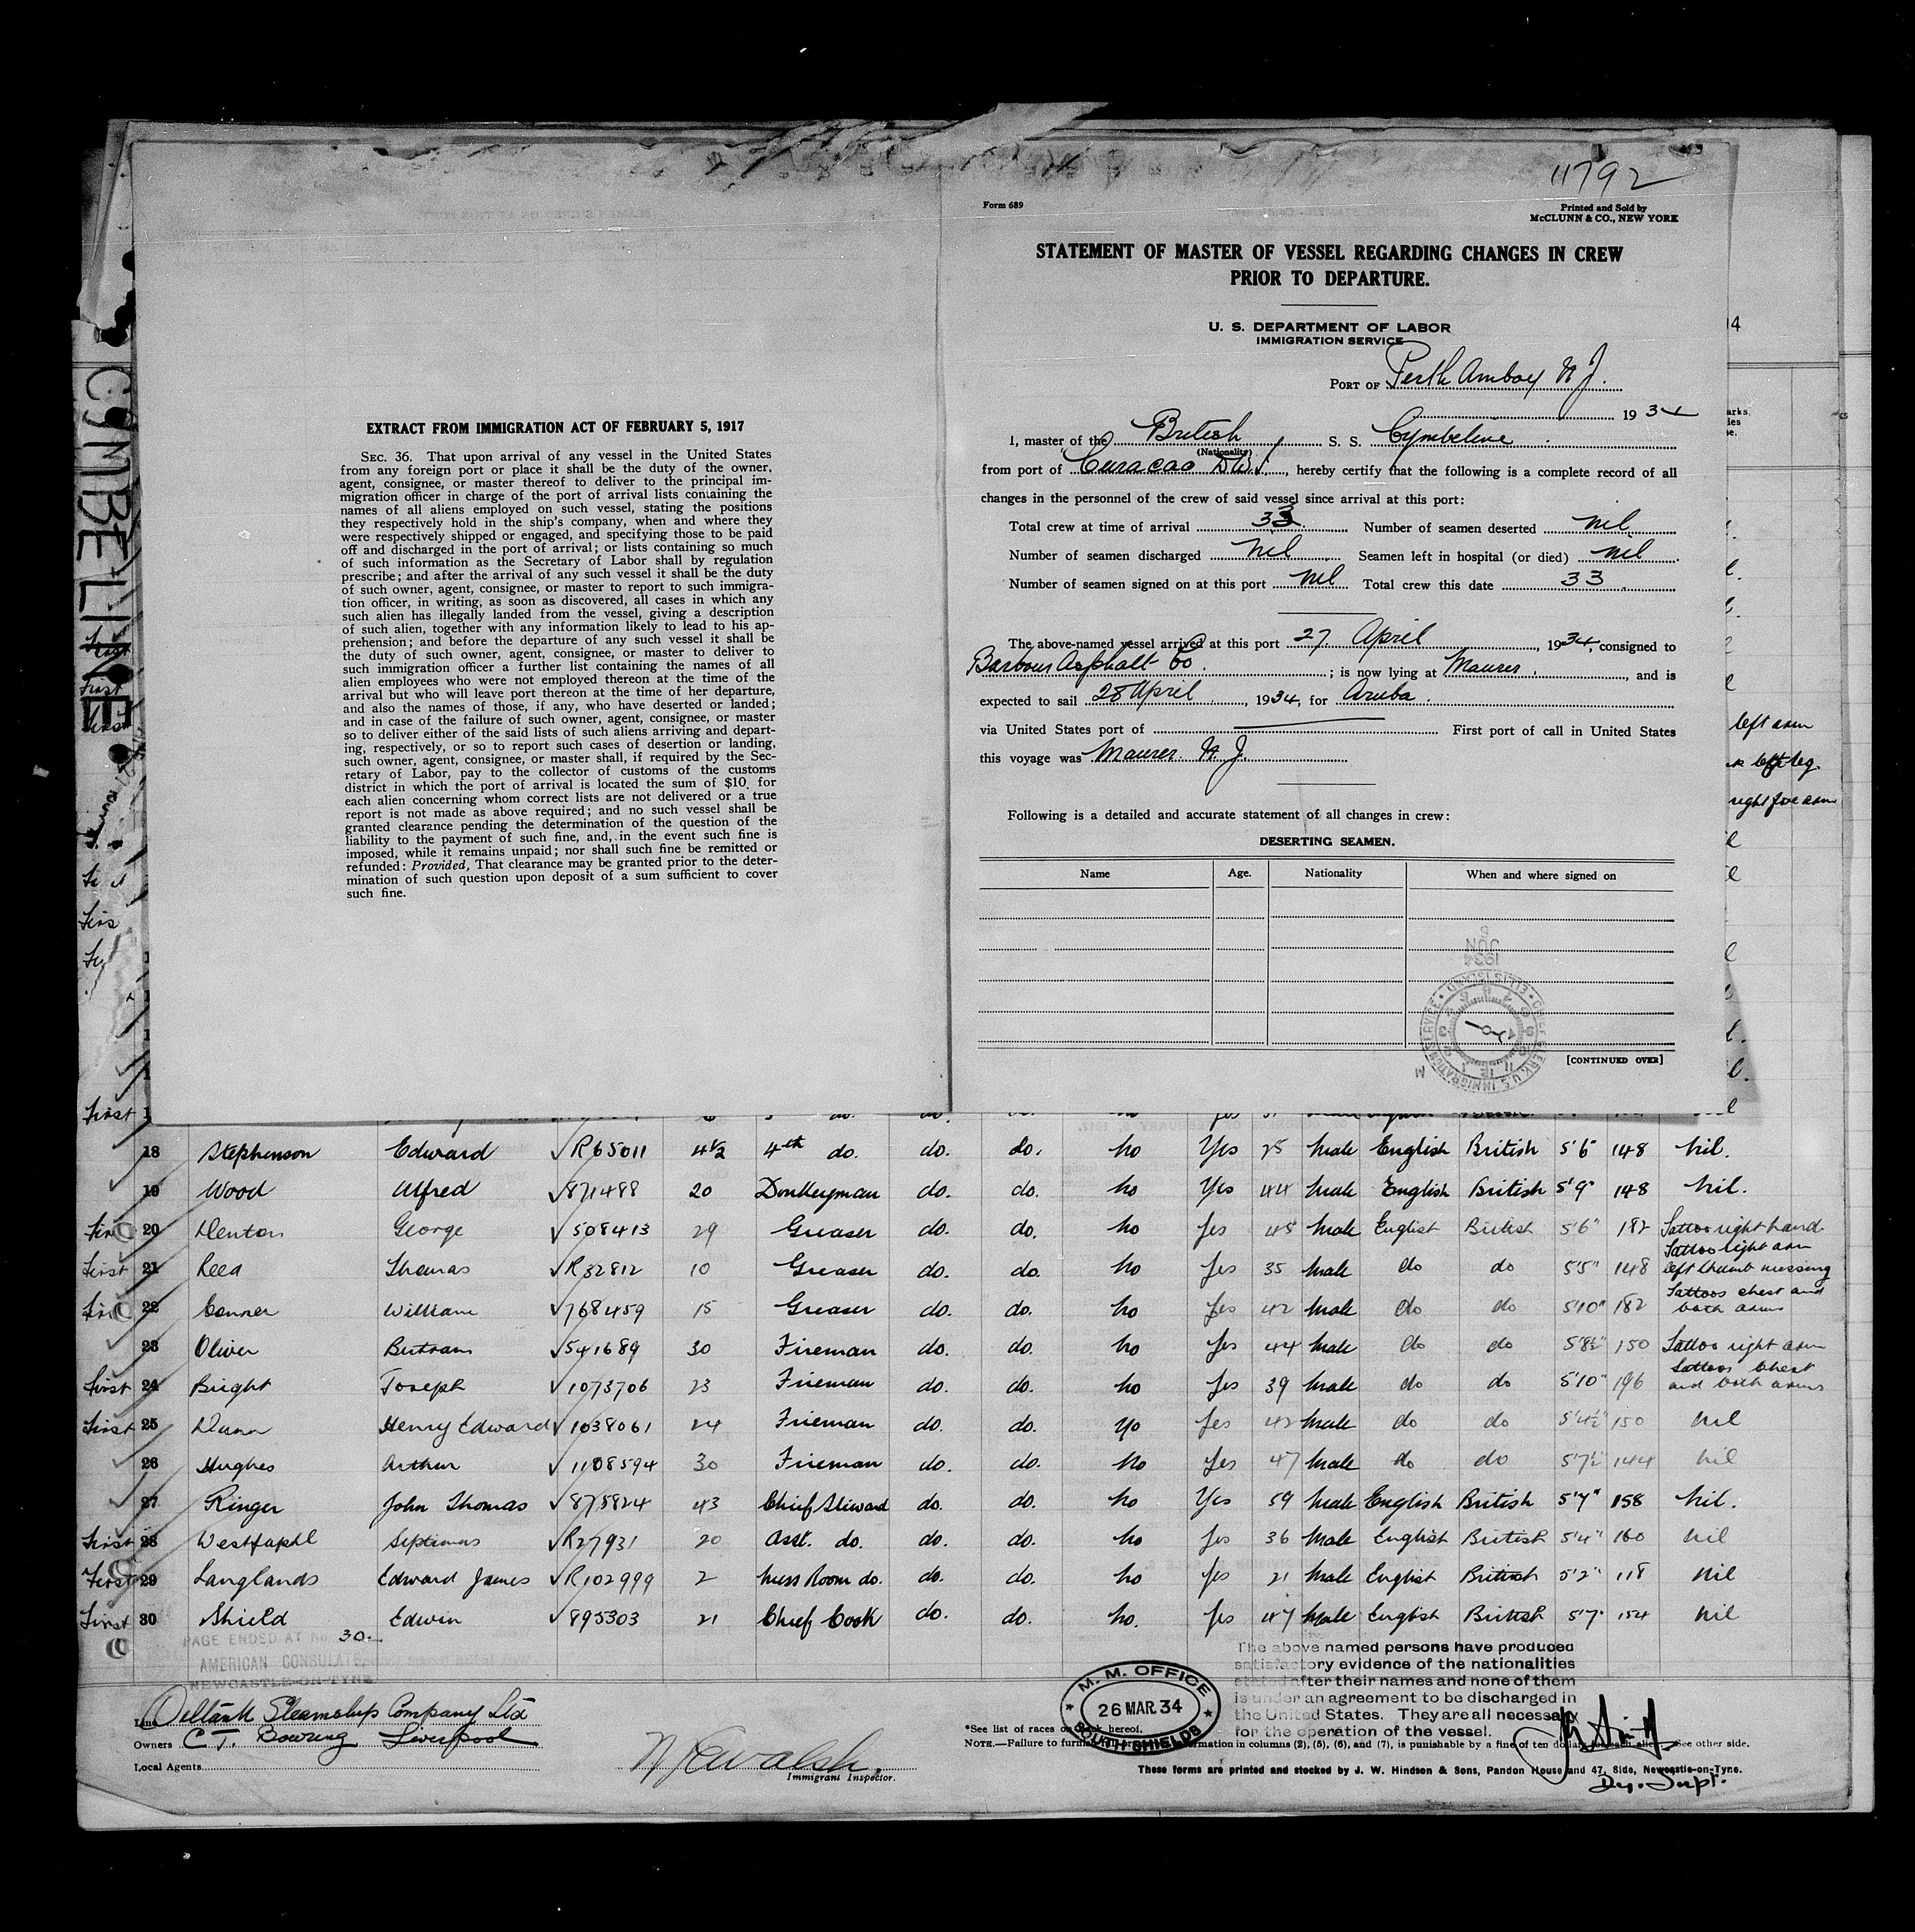 11792
Form 689
Printed and Sold by
McCLUNN & CO., NEW YORK
STATEMENT OF MASTER OF VESSEL REGARDING CHANGES IN CREW
PRIOR TO DEPARTURE.
U. S. DEPARTMENT OF LABOR
IMMIGRATION SERVICE
PORT OF Perth Amboy N J.
1934
I, master of the British S. S. Cymbeline
(Nationality)
from port of Curacao D.W.I., hereby certify that the following is a complete record of all
changes in the personnel of the crew of said vessel since arrival at this port:
Total crew at time of arrival 33 Number of seamen deserted nil
Number of seamen discharged Nil Seamen left in hospital (or died) nil
Number of seamen signed on at this port Nil Total crew this date 33
The above-named vessel arrived at this port 27 April, 1934, consigned to
Barbour Asphalt Co.; is now lying at Maurer, and is
expected to sail 28 April, 1934, for Aruba.
via United States port of First port of call in United States
this voyage was Maurer. N J.
Following is a detailed and accurate statement of all changes in crew:
DESERTING SEAMEN.
Name Age. Nationality When and where signed on
1934
JUN
CHIEF CLERK U.S. IMMIGRATION SERVICE • ELLIS ISLAND •
[CONTINUED OVER]
EXTRACT FROM IMMIGRATION ACT OF FEBRUARY 5, 1917
SEC. 36. That upon arrival of any vessel in the United States
from any foreign port or place it shall be the duty of the owner,
agent, consignee, or master thereof to deliver to the principal im-
migration officer in charge of the port of arrival lists containing the
names of all aliens employed on such vessel, stating the positions
they respectively hold in the ship's company, when and where they
were respectively shipped or engaged, and specifying those to be paid
off and discharged in the port of arrival; or lists containing so much
of such information as the Secretary of Labor shall by regulation
prescribe; and after the arrival of any such vessel it shall be the duty
of such owner, agent, consignee, or master to report to such immigra-
tion officer, in writing, as soon as discovered, all cases in which any
such alien has illegally landed from the vessel, giving a description
of such alien, together with any information likely to lead to his ap-
prehension; and before the departure of any such vessel it shall be
the duty of such owner, agent, consignee, or master to deliver to
such immigration officer a further list containing the names of all
alien employees who were not employed thereon at the time of the
arrival but who will leave port thereon at the time of her departure,
and also the names of those, if any, who have deserted or landed;
and in case of the failure of such owner, agent, consignee, or master
so to deliver either of the said lists of such aliens arriving and depart-
ing, respectively, or so to report such cases of desertion or landing,
such owner, agent, consignee, or master shall, if required by the Sec-
retary of Labor, pay to the collector of customs of the customs
district in which the port of arrival is located the sum of $10, for
each alien concerning whom correct lists are not delivered or a true
report is not made as above required; and no such vessel shall be
granted clearance pending the determination of the question of the
liability to the payment of such fine, and, in the event such fine is
imposed, while it remains unpaid; nor shall such fine be remitted or
refunded: Provided, That clearance may be granted prior to the deter-
mination of such question upon deposit of a sum sufficient to cover
such fine.
CYMBELINE
left arm
left leg
right fore arm
18 Stephenson Edward √R65011 4½ 4th do. do. do. no Yes 25 Male English British 5'6" 148 Nil.
19 Wood Alfred √871488 20 Donkeyman do. do. no Yes 44 Male English British 5'9" 148 Nil.
20 Denton George √508413 29 Greaser do. do. no Yes 45 Male English British 5'6" 182 Tattoo right hand
First 21 Reed Thomas √R32812 10 Greaser do. do. no Yes 35 Male do do 5'5" 148 Tattoo right arm left thumb missing
22 Conner William √768459 15 Greaser do. do. no Yes 42 Male do do 5'10" 182 Tattoos chest and both arms
23 Oliver Bertram √541689 30 Fireman do. do. no Yes 44 Male do do 5'8½" 150 Tattoo right arm
First 24 Bright Joseph √1073706 23 Fireman do. do. no Yes 39 Male do do 5'10" 196 Tattoos Chest and both arms
First 25 Dunn Henry Edward √1038061 24 Fireman do. do. no Yes 42 Male do do 5'4½" 150 nil
26 Hughes Arthur √1108594 30 Fireman do. do. no Yes 47 Male do do 5'7½" 144 nil
27 Ringer John Thomas √875824 43 Chief Steward do. do. no Yes 59 Male English British 5'7" 158 Nil.
First 28 Westfaphl Septimus √R27931 20 Asst. do. do. do. no Yes 36 Male English British 5'4" 160 nil
First 29 Langlands Edward James √R102999 2 Mess Room do. do. do. no Yes 21 Male English British 5'2" 118 Nil
First 30 Shield Edwin √895303 21 Chief Cook do. do. no. Yes 47 Male English British 5'7" 154 Nil
PAGE ENDED AT No. 30.
AMERICAN CONSULATE,
NEWCASTLE-ON-TYNE
The above named persons have produced
satisfactory evidence of the nationalities
stated after their names and none of them
is under an agreement to be discharged in
the United States. They are all necessary
for the operation of the vessel.
M. M. OFFICE
26 MAR. 34
SOUTH SHIELDS
Line Steamship Company Ltd
Owners C.T. Bowring Liverpool
Local Agents
Immigrant Inspector.
*See list of races on back hereof.
NOTE.—Failure to furnish information in columns (2), (5), (6), and (7), is punishable by a fine of ten dollars for each alien. See other side.
These forms are printed and stocked by J. W. Hindson & Sons, Pandon House and 47, Side, Newcastle-on-Tyne.
Dy. Supt.